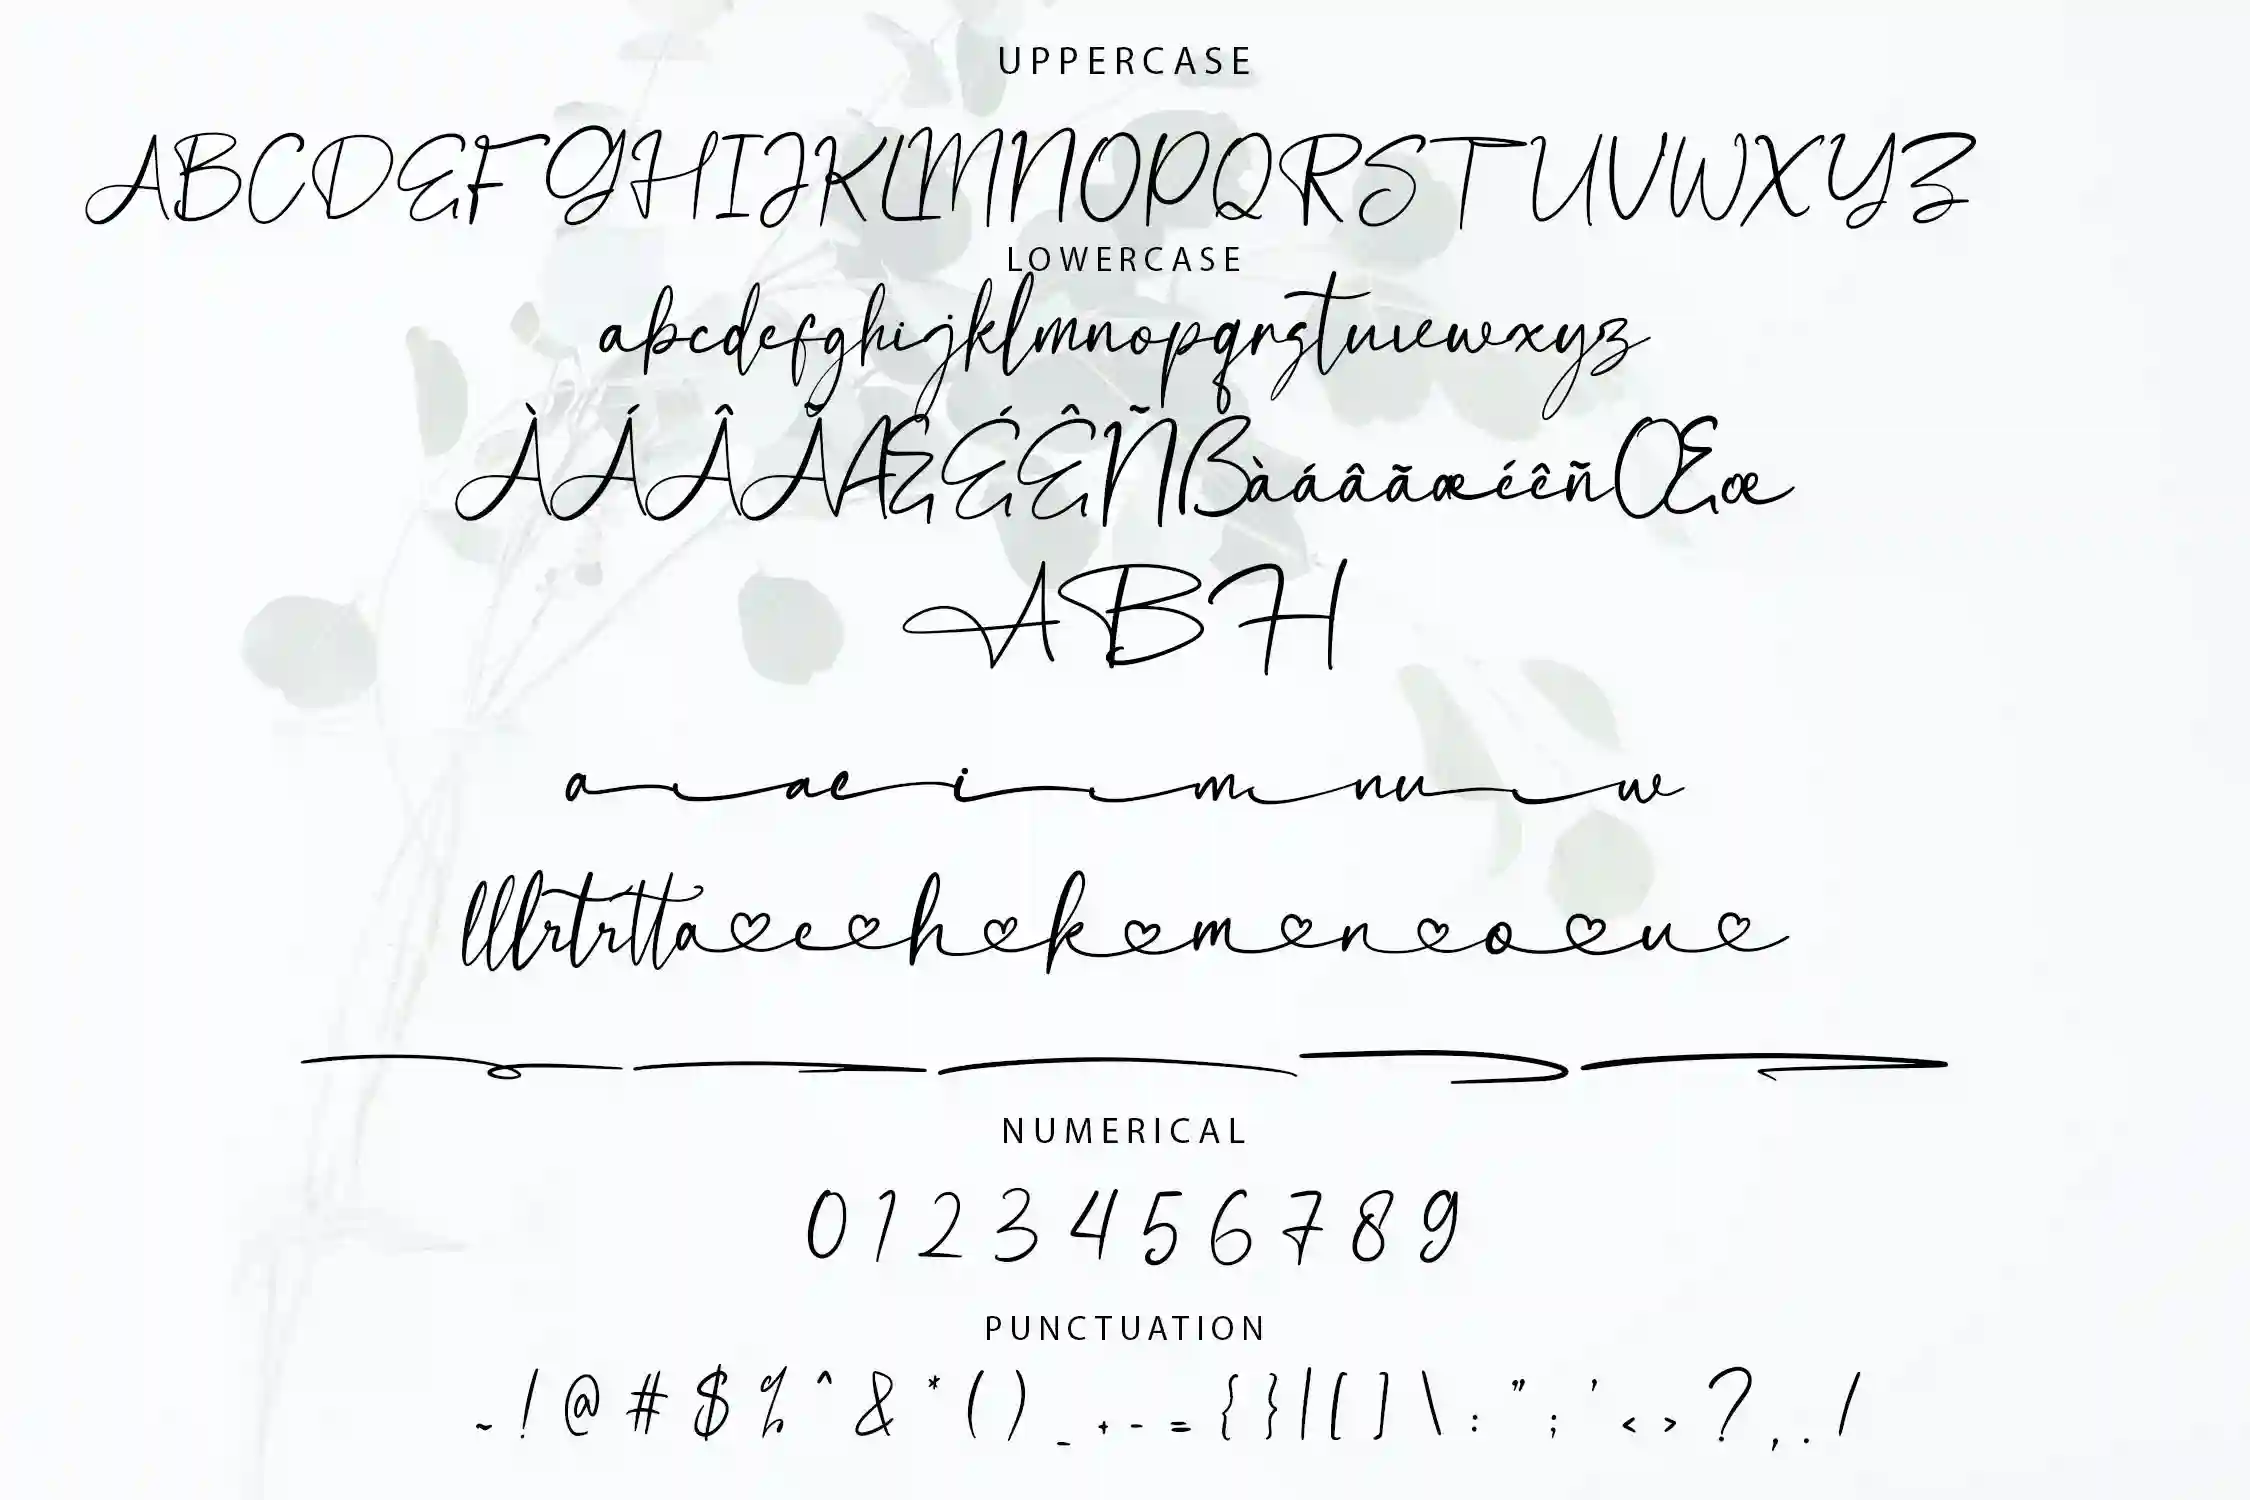 UPPERCASE
ABCDEFGHIJKLMNOPQRSTUVWXYZ
LOWERCASE
abcdefghijklmnopqrstuvwxyz
ÀÁÂÃÆÉÊÑßàáâãæéêñŒœ
ABH
a ae i m nu w
lllrtrttaehkmnou
NUMERICAL
0 1 2 3 4 5 6 7 8 9
PUNCTUATION
~ ! @ # $ % ^ & * ( ) _ + - = { } | [ ] \ : " ; ' < > ? , . /